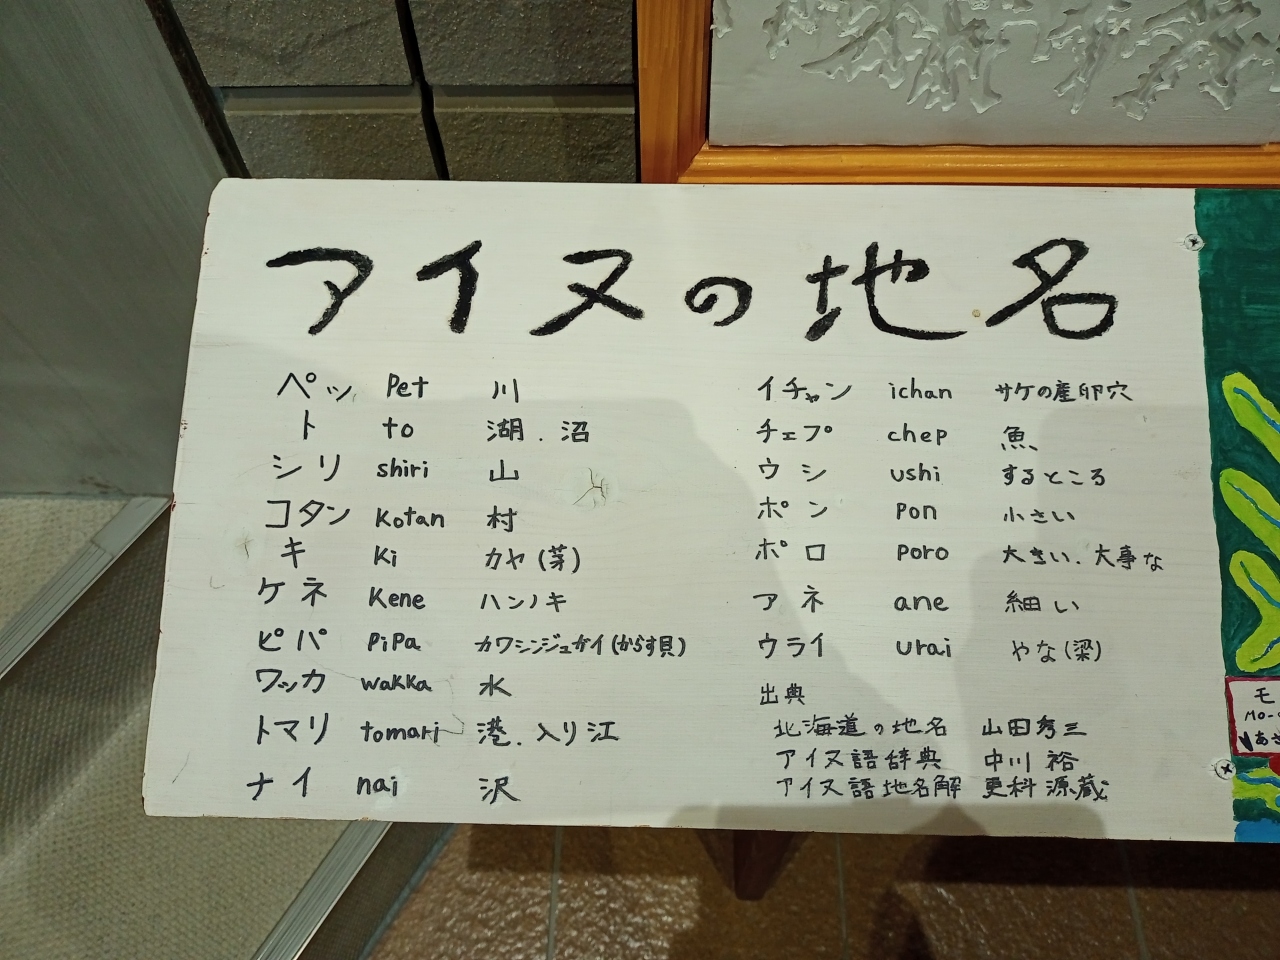 アイヌの地名
ペッ pet 川
ト to 湖．沼
シリ shiri 山
コタン kotan 村
キ ki カヤ(芽)
ケネ kene ハンノキ
ピパ pipa カワシンジュガイ(からす貝)
ワッカ wakka 水
トマリ tomari 港．入り江
ナイ nai 沢
イチャン ichan サケの産卵穴
チェプ chep 魚
ウシ ushi するところ
ポン pon 小さい
ポロ poro 大きい．大事な
アネ ane 細い
ウライ urai やな(梁)
出典
北海道の地名 山田秀三
アイヌ語辞典 中川裕
アイヌ語地名解 更科源蔵
モ